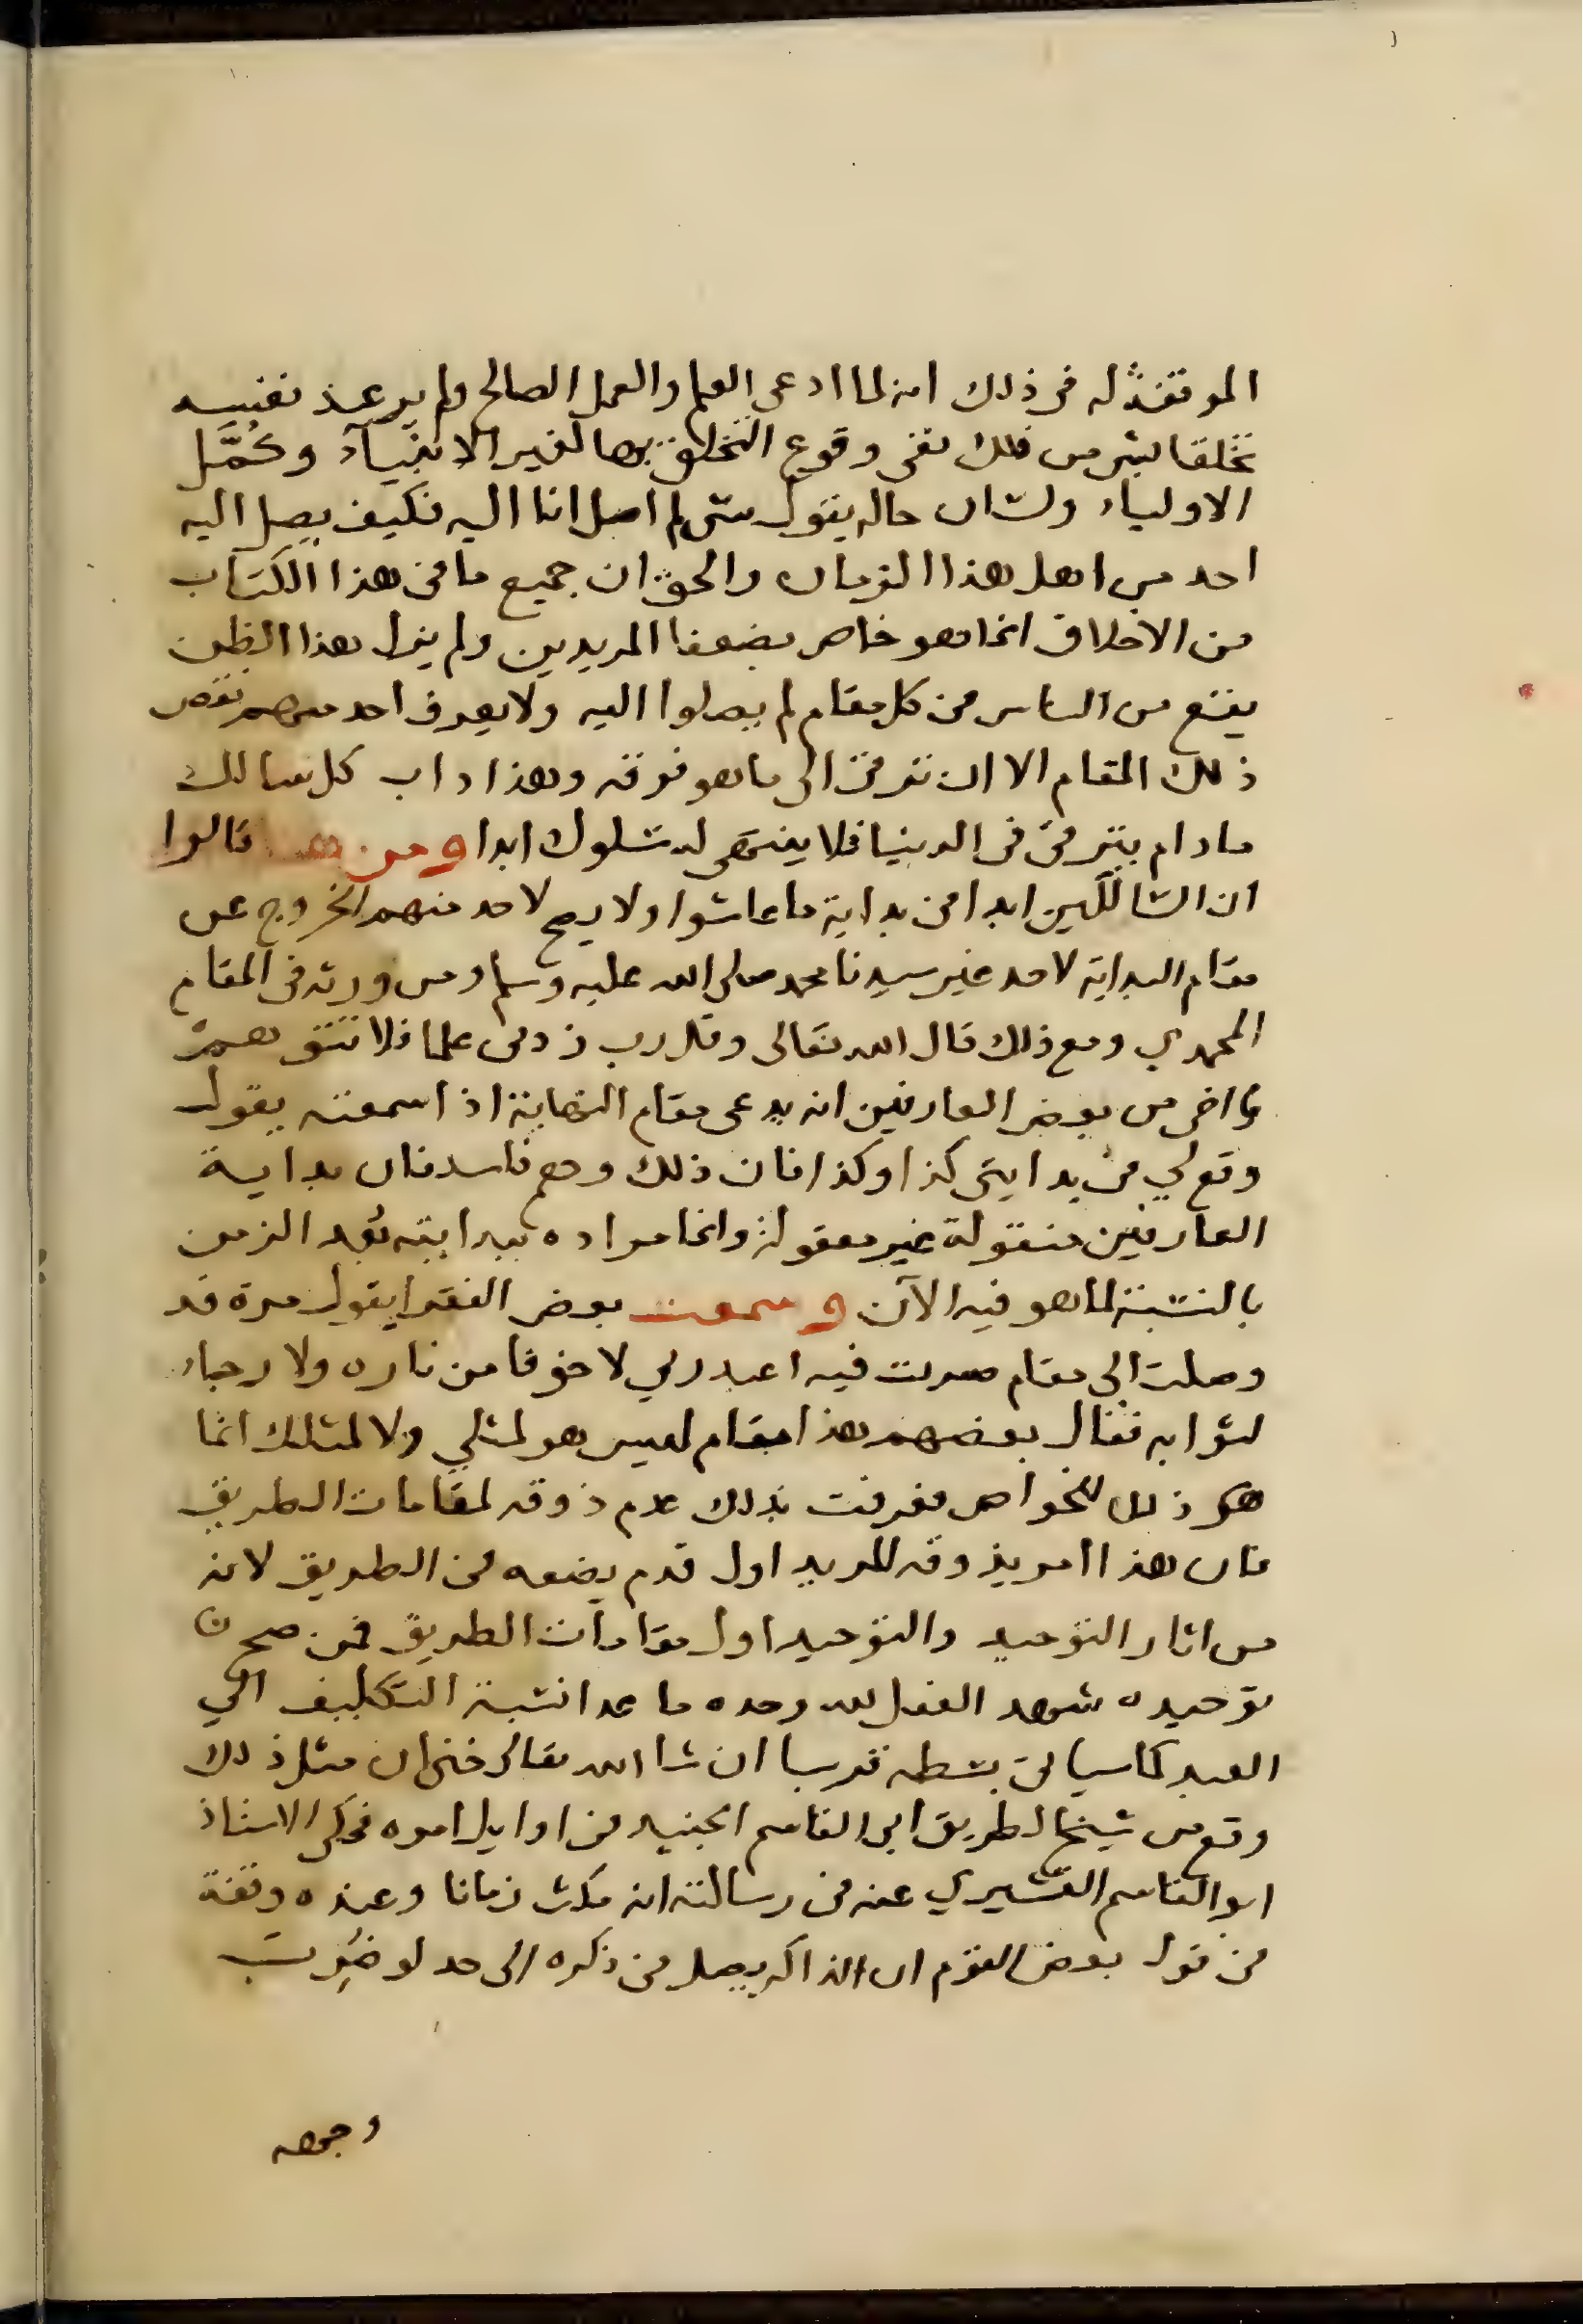 الموقفة له في ذلك انه لما ادعى العلم والعمل الصالح ولم ير عند نفسه
تخلقا بشي من ذلك نفى وقوع التخلق بها لغير الانبياء وكُمَّل
الاولياء ولسان حاله يقول شي لم اصل انا اليه فكيف يصل اليه
احد من اهل هذا الزمان والحق ان جميع ما في هذا الكتاب
من الاخلاق انما هو خاص بضعفا المريدين ولم يزل هذا الظن
يقع من الناس في كل مقام لم يصلوا اليه ولا يعرف احد منهم نقص
ذلك المقام الا ان ترقى الى ما هو فوقه وهذا داب كل سالك
ما دام يترقى في الدنيا فلا ينتهي له سلوك ابدا ومن هنا قالوا
ان السالكين ابدا في بداية ما عاشوا ولا يصح لاحد منهم الخروج عن
مقام البداية لاحد غير سيدنا محمد صلى الله عليه وسلم ومن ورثه في المقام
المحمدي ومع ذلك قال الله تعالى وقل رب زدني علما فلا تتوهم
يا اخي من بعض العارفين انه يدعى مقام النهاية اذا سمعته يقول
وقع لي في بدايتي كذا وكذا فان ذلك وهم فاسد فان بداية
العارفين منقولة غير معقولة وانما مراده ببدايته بُعد الزمن
بالنسبة لما هو فيه الآن وسمعت بعض الفقرا يقول مرة قد
وصلت الى مقام صرت فيه اعبد ربي لا خوفا من ناره ولا رجاء
لثوابه فقال بعضهم هذا مقام ليس هو لمثلي ولا لمثلك انما
هو ذلك للخواص فعرفت بذلك عدم ذوقه لمقامات الطريق
فان هذا امر يذوقه المريد اول قدم يضعه في الطريق لانه
من اثار التوحيد والتوحيد اول مقامات الطريق فمن صح
توحيده شهد الفعل لله وحده ما عدا نسبة التكليف الي
العبد كما سياتي بسطه قريبا ان شا الله تعالى حتى ان مثل ذلك
وقع من شيخ الطريق ابي القاسم الجنيد في اوايل امره فحكى الاستاذ
ابو القاسم القشيري عنه في رسالته انه مكث زمانا وعنده وقفة
في قول بعض القوم ان الذاكر يصل في ذكره الى حد لو ضُرِبَ
وجهه